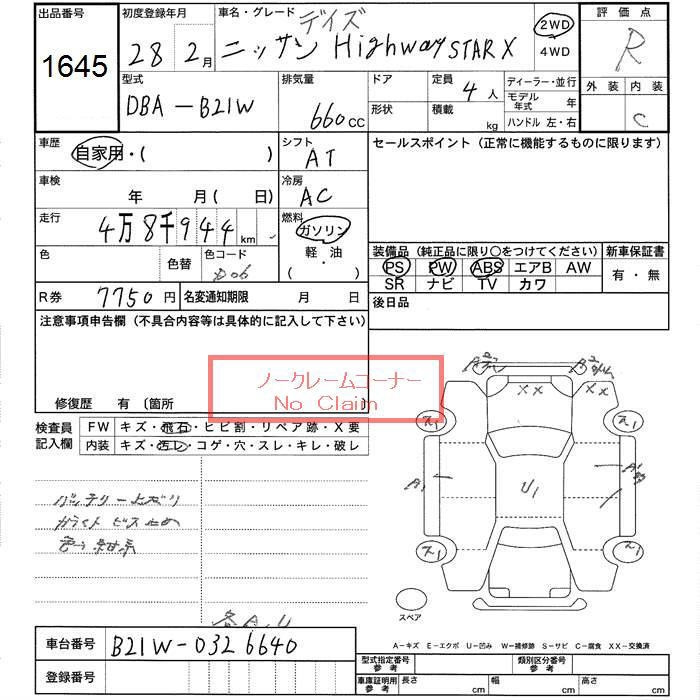 出品番号
1645
初度登録年月
28 2月
車名・グレード
デイズ
ニッサン Highway STAR X
2WD
4WD
評価点
R
外装 内装
C
型式
DBA-B21W
排気量
660cc
ドア
形状
定員
4人
積載
kg
ディーラー・並行
モデル年式 年
ハンドル 左・右
車歴
自家用・( )
シフト
AT
セールスポイント(正常に機能するものに限ります)
車検
年 月(日)
冷房
AC
走行
4万8千944km
燃料
ガソリン
軽・油
( )
色
色替
色コード
装備品(純正品に限り○をつけてください)
PS PW ABS エアB AW
SR ナビ TV カワ
新車保証書
有・無
R券 7750円
名変通知期限 月 日
後日品
注意事項申告欄(不具合内容等は具体的に記入して下さい)
ノークレームコーナー
No Claim
修復歴 有(箇所 )
検査員記入欄
FW キズ・飛石・ヒビ割・リペア跡・X要
内装 キズ・汚レ・コゲ・穴・スレ・キレ・破レ
バッテリー上ガリ
XX
XX
A1
U1
スペア
A-キズ E-エクボ U-凹み W-補修跡 S-サビ C-腐食 XX-交換済
車台番号 B21W-0326640
登録番号
型式指定番号参考
類別区分番号参考
車庫証明用参考 長さ cm 幅 cm 高さ cm